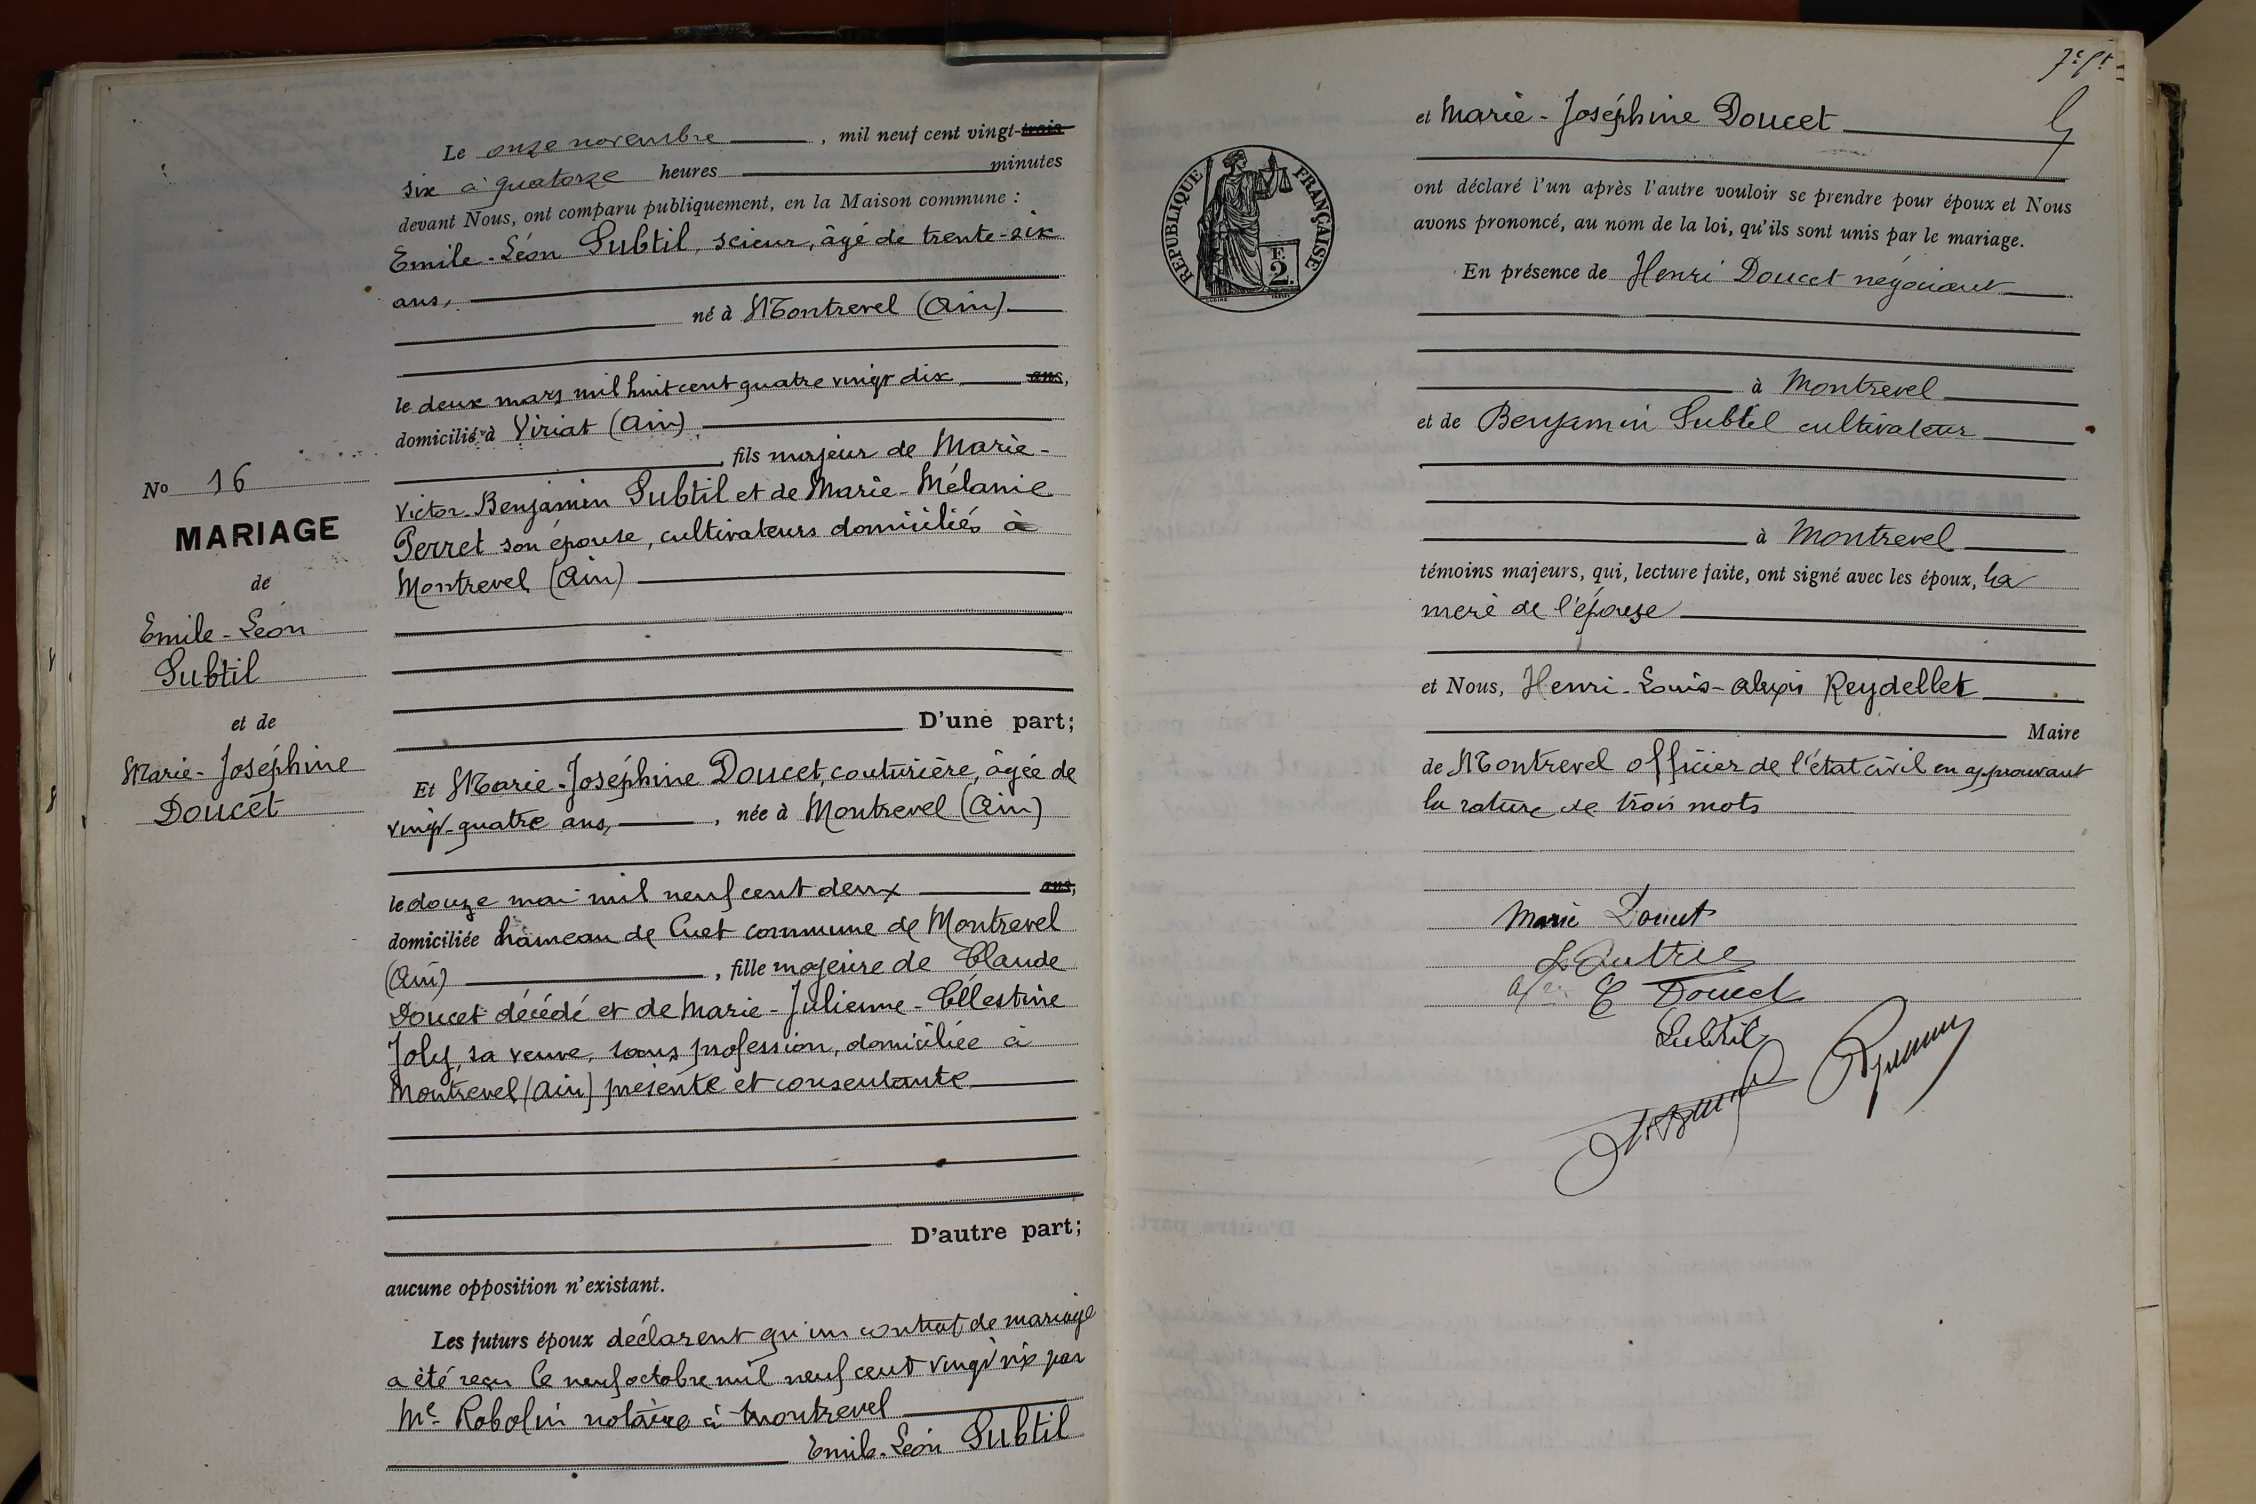 Le onze novembre, mil neuf cent vingt-trois
six à quatorze heures minutes
devant Nous, ont comparu publiquement, en la Maison commune :
Emile-Léon Subtil, scieur, âgé de trente-six
ans,
né à Montrevel (Ain)
le deux mars mil huit cent quatre vingt dix ans,
domicilié à Viriat (Ain)
, fils majeur de Marie-
Victor-Benjamin Subtil et de Marie-Mélanie
Perret son épouse, cultivateurs domiciliés à
Montrevel (Ain)
D'une part;
No 16
MARIAGE
de
Emile-Léon
Subtil
et de
Marie-Joséphine
Doucet
Et Marie-Joséphine Doucet, couturière, âgée de
vingt-quatre ans, , née à Montrevel (Ain)
le douze mai mil neuf cent deux ans,
domiciliée hameau de Cuet commune de Montrevel
(Ain) , fille majeure de Claude
Doucet décédé et de Marie-Julienne-Célestine
Joly, sa veuve, sans profession, domiciliée à
Montrevel (Ain) présente et consentante
D'autre part;
aucune opposition n'existant.
Les futurs époux déclarent qu'un contrat de mariage
a été reçu le neuf octobre mil neuf cent vingt six par
Me Robolin notaire à Montrevel
Emile-Léon Subtil
et Marie-Joséphine Doucet
RÉPUBLIQUE FRANÇAISE
F.
2.
ont déclaré l'un après l'autre vouloir se prendre pour époux et Nous
avons prononcé, au nom de la loi, qu'ils sont unis par le mariage.
En présence de Henri Doucet négociant
à Montrevel
et de Benjamin Subtil cultivateur
à Montrevel
témoins majeurs, qui, lecture faite, ont signé avec les époux, la
mère de l'épouse
et Nous, Henri-Louis-Alexis Reydellet
Maire
de Montrevel officier de l'état civil en approuvant
la rature de trois mots
Marie Doucet
Doucet
Subtil